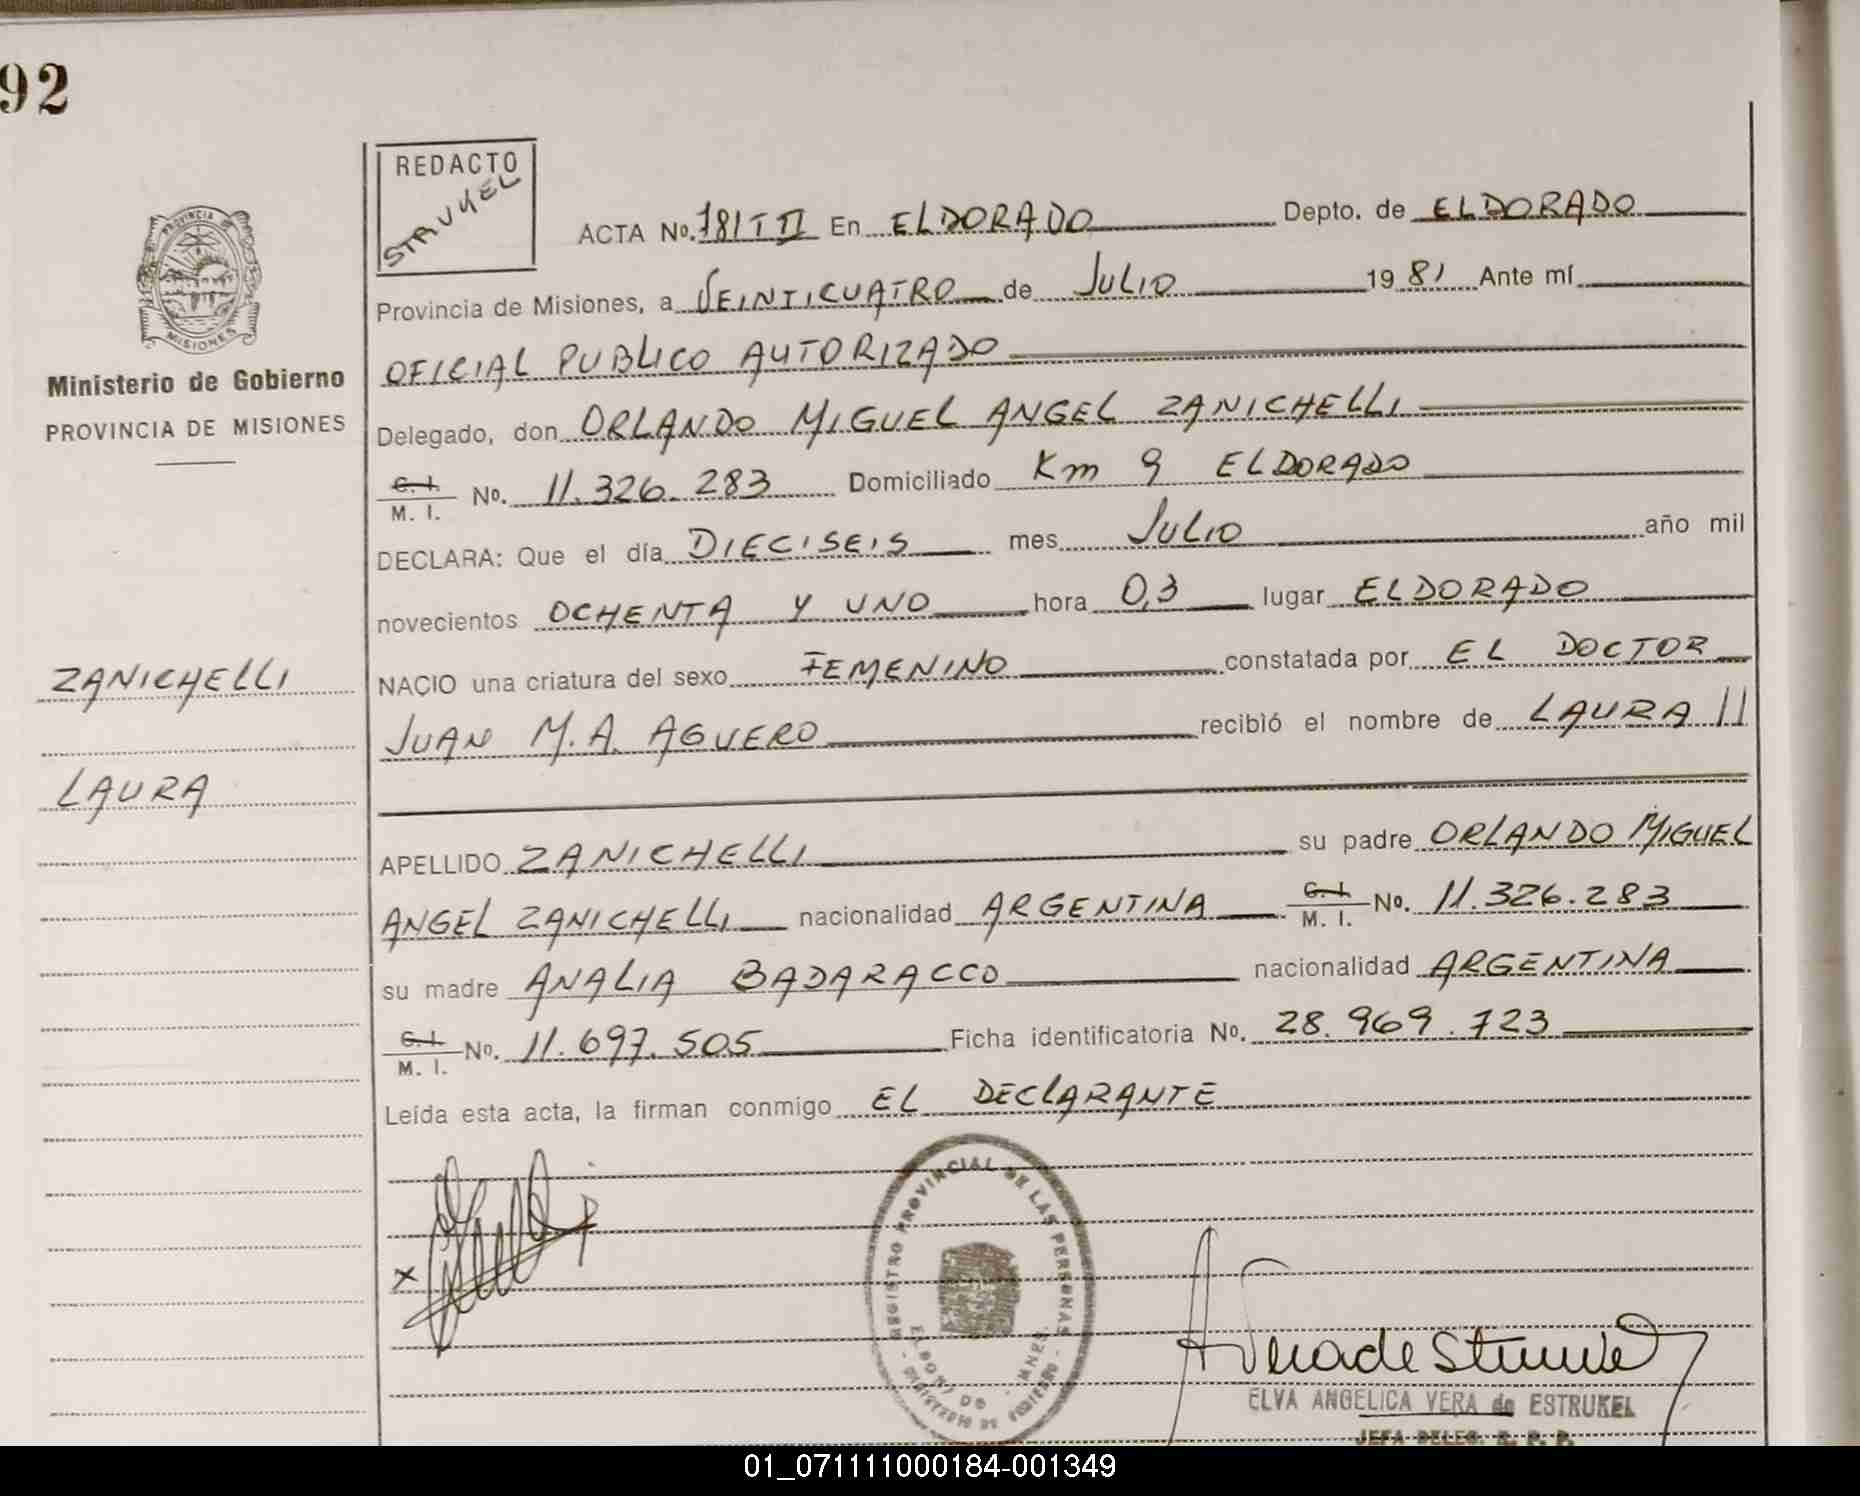 92
REDACTO
STRUKEL
ACTA No. 781 T II En ELDORADO Depto. de ELDORADO
Provincia de Misiones, a VEINTICUATRO de JULIO 1981 Ante mí
OFICIAL PUBLICO AUTORIZADO
Delegado, don ORLANDO MIGUEL ANGEL ZANICHELLI
C. I. / M. I. No. 11.326.283 Domiciliado Km 9 ELDORADO
DECLARA: Que el día DIECISEIS mes JULIO año mil
novecientos OCHENTA Y UNO hora 0,3 lugar ELDORADO
NACIO una criatura del sexo FEMENINO constatada por EL DOCTOR
JUAN M.A. AGUERO recibió el nombre de LAURA
APELLIDO ZANICHELLI su padre ORLANDO MIGUEL
ANGEL ZANICHELLI nacionalidad ARGENTINA C. I. / M. I. No. 11.326.283
su madre ANALIA BADARACCO nacionalidad ARGENTINA
C. I. / M. I. No. 11.697.505 Ficha identificatoria No. 28.969.723
Leída esta acta, la firman conmigo EL DECLARANTE
PROVINCIA
MISIONES
Ministerio de Gobierno
PROVINCIA DE MISIONES
ZANICHELLI
LAURA
x
REGISTRO PROVINCIAL DE LAS PERSONAS
ELDORADO - MNES.
MINISTERIO DE GOBIERNO
A Vera de Strukel
ELVA ANGELICA VERA de ESTRUKEL
JEFA DELEG. R. P. P.
01_071111000184-001349